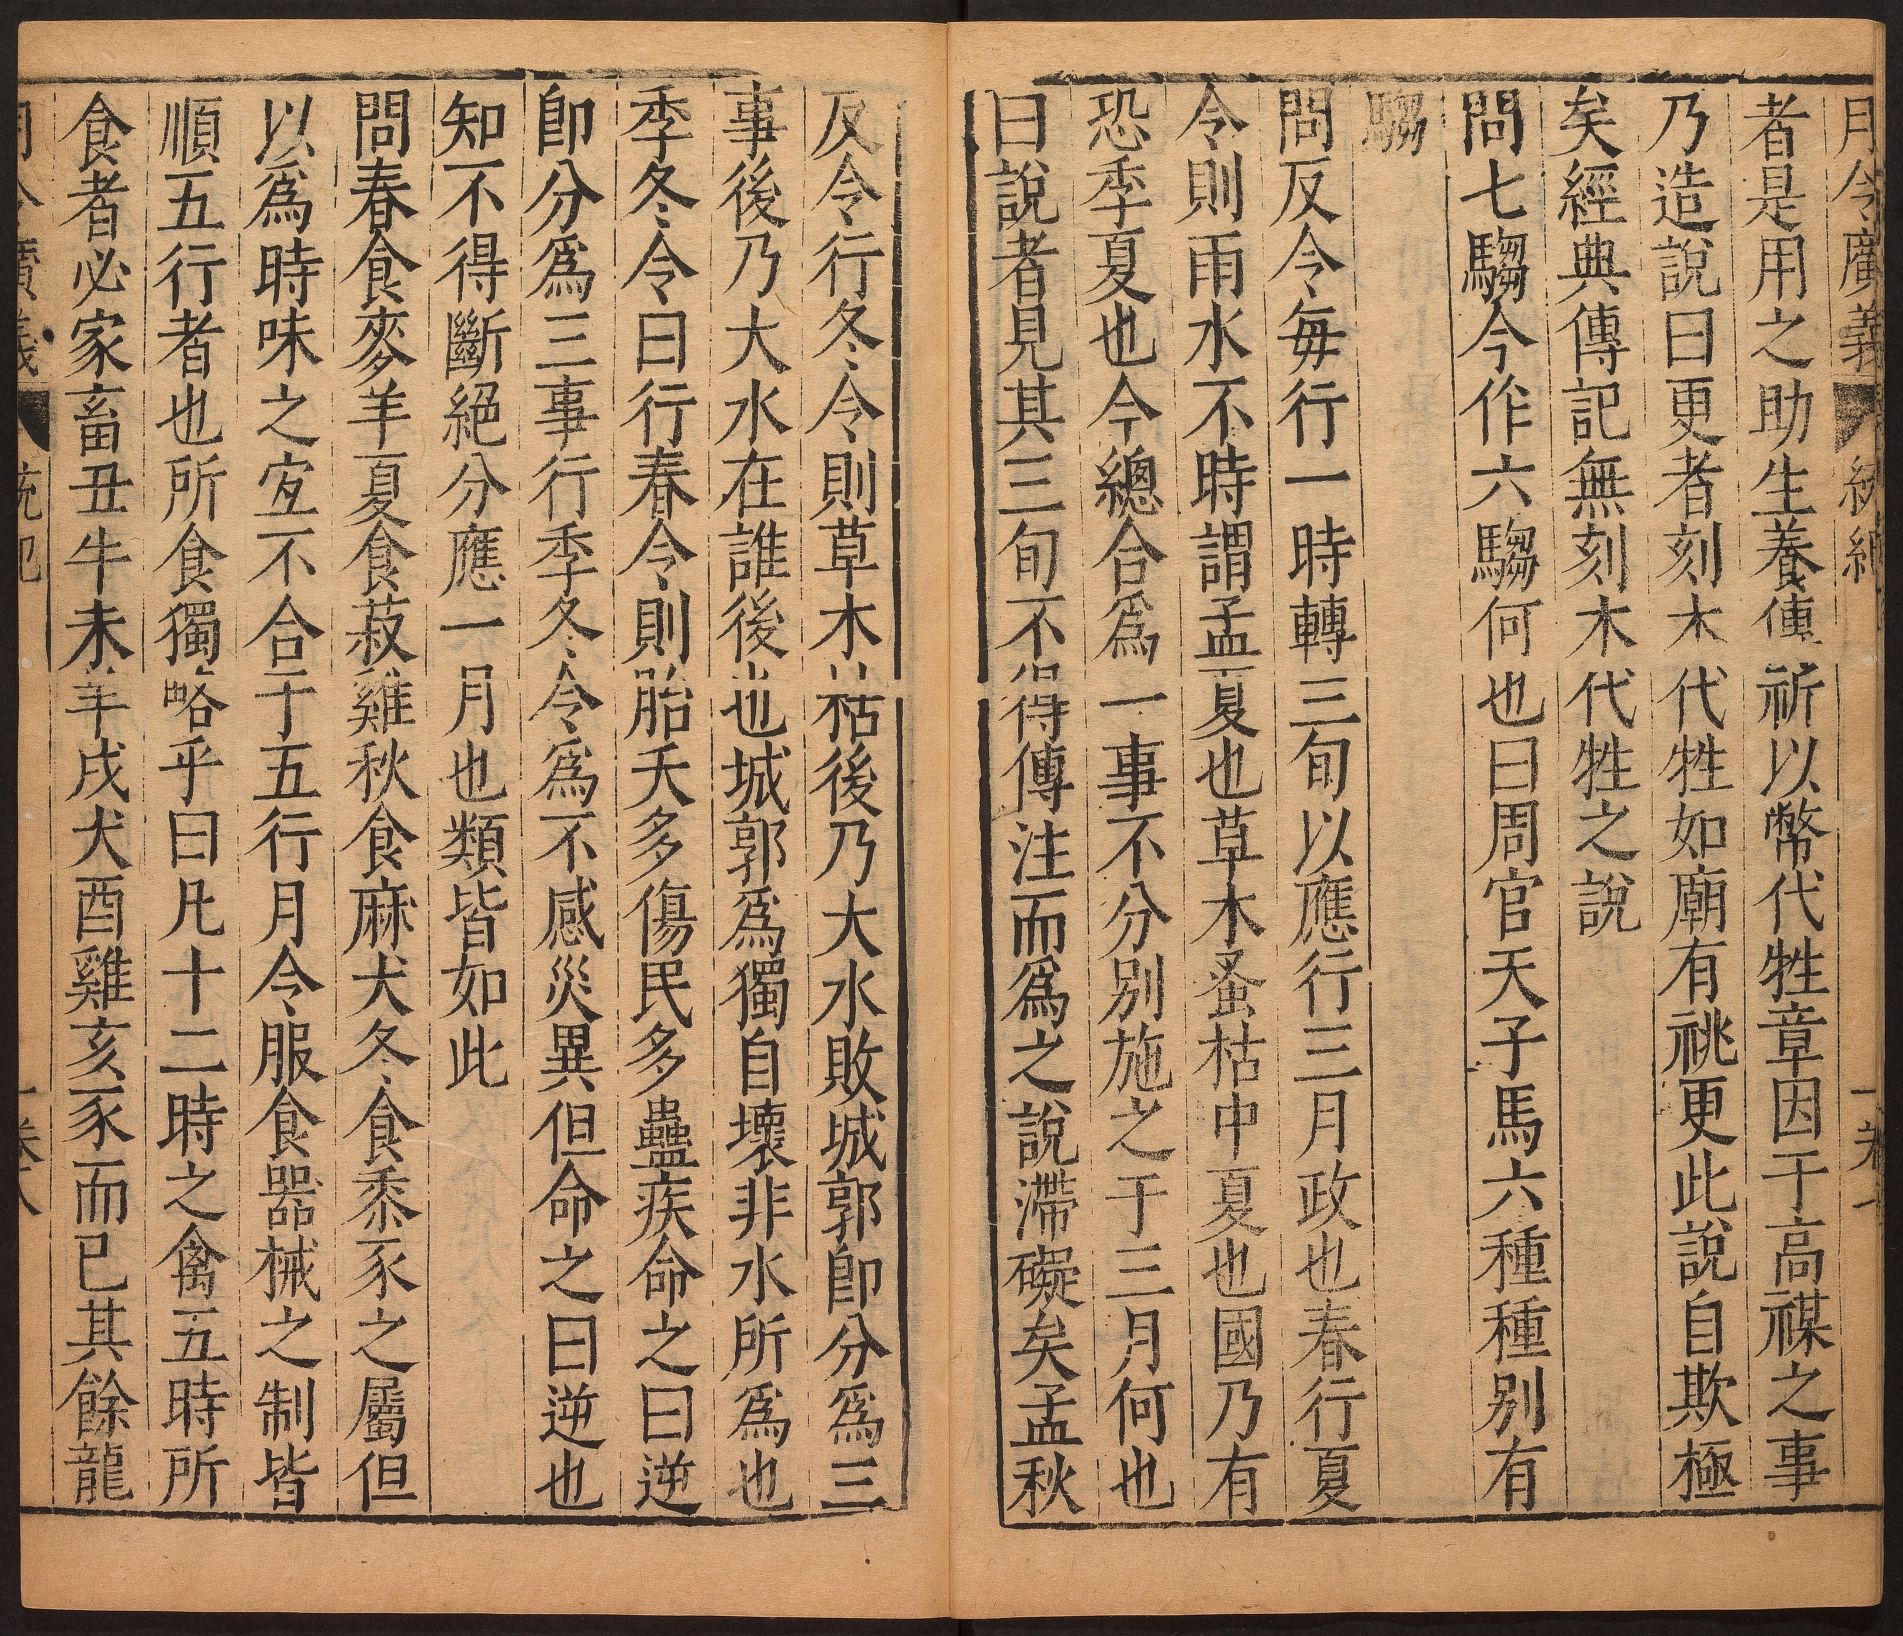 月令廣義 統紀
者是用之助生養傳祈以幣代牲章因于高禖之事
乃造說曰更者刻木代牲如廟有祧更此說自欺極
矣經典傳記無刻木代牲之說
問七騶今作六騶何也曰周官天子馬六種種别有
騶
問反令每行一時轉三旬以應行三月政也春行夏
令則雨水不時謂孟夏也草木蚤枯中夏也國乃有
恐季夏也今總合爲一事不分别施之于三月何也
曰說者見其三旬不得傳注而爲之說滯礙矣孟秋
反令行冬令則草木枯後乃大水敗城郭卽分爲三
事後乃大水在誰後也城郭爲獨自壞非水所爲也
季冬令曰行春令則胎夭多傷民多蠱疾命之曰逆
卽分爲三事行季冬令爲不感災異但命之曰逆也
知不得斷絕分應一月也類皆如此
問春食麥羊夏食菽雞秋食麻犬冬食黍豕之屬但
以爲時味之宐不合于五行月令服食器械之制皆
順五行者也所食獨略乎曰凡十二時之禽五時所
食者必家畜丑牛未羊戌犬酉雞亥豕而已其餘龍
月令廣義 統紀 卷